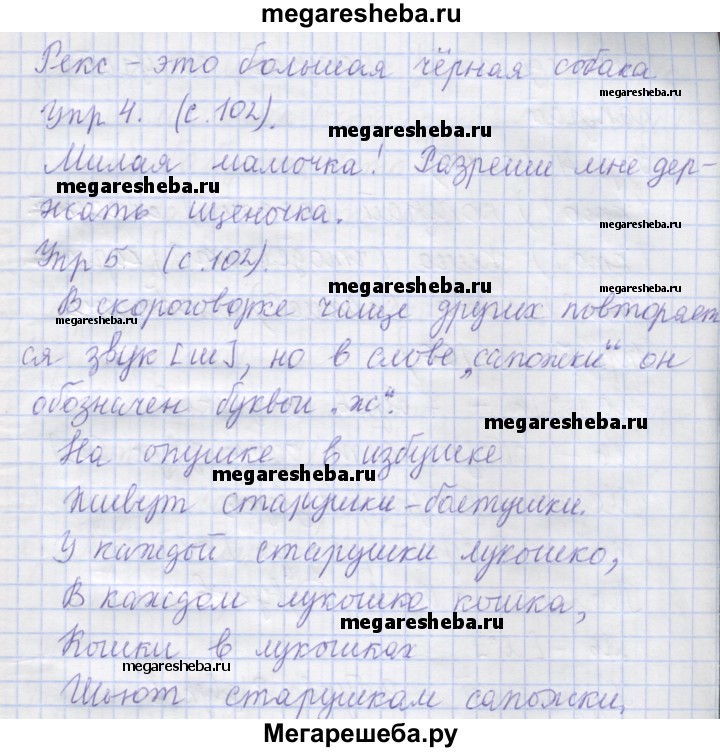 megaresheba.ru
Рекс – это большая чёрная собака
megaresheba.ru
Упр 4. (с.102).
megaresheba.ru
Милая мамочка! Разреши мне дер-
megaresheba.ru
жать щеночка.
megaresheba.ru
Упр 5 (с.102).
megaresheba.ru
В скороговорке чаще других повторяет
megaresheba.ru
ся звук [ш], но в слове „сапожки“ он
обозначен буквой „ж“.
megaresheba.ru
На опушке в избушке
megaresheba.ru
Живут старушки–болтушки.
У каждой старушки лукошко,
В каждом лукошке кошка,
megaresheba.ru
Кошки в лукошках
megaresheba.ru
Шьют старушкам сапожки.
Мегарешеба.ру